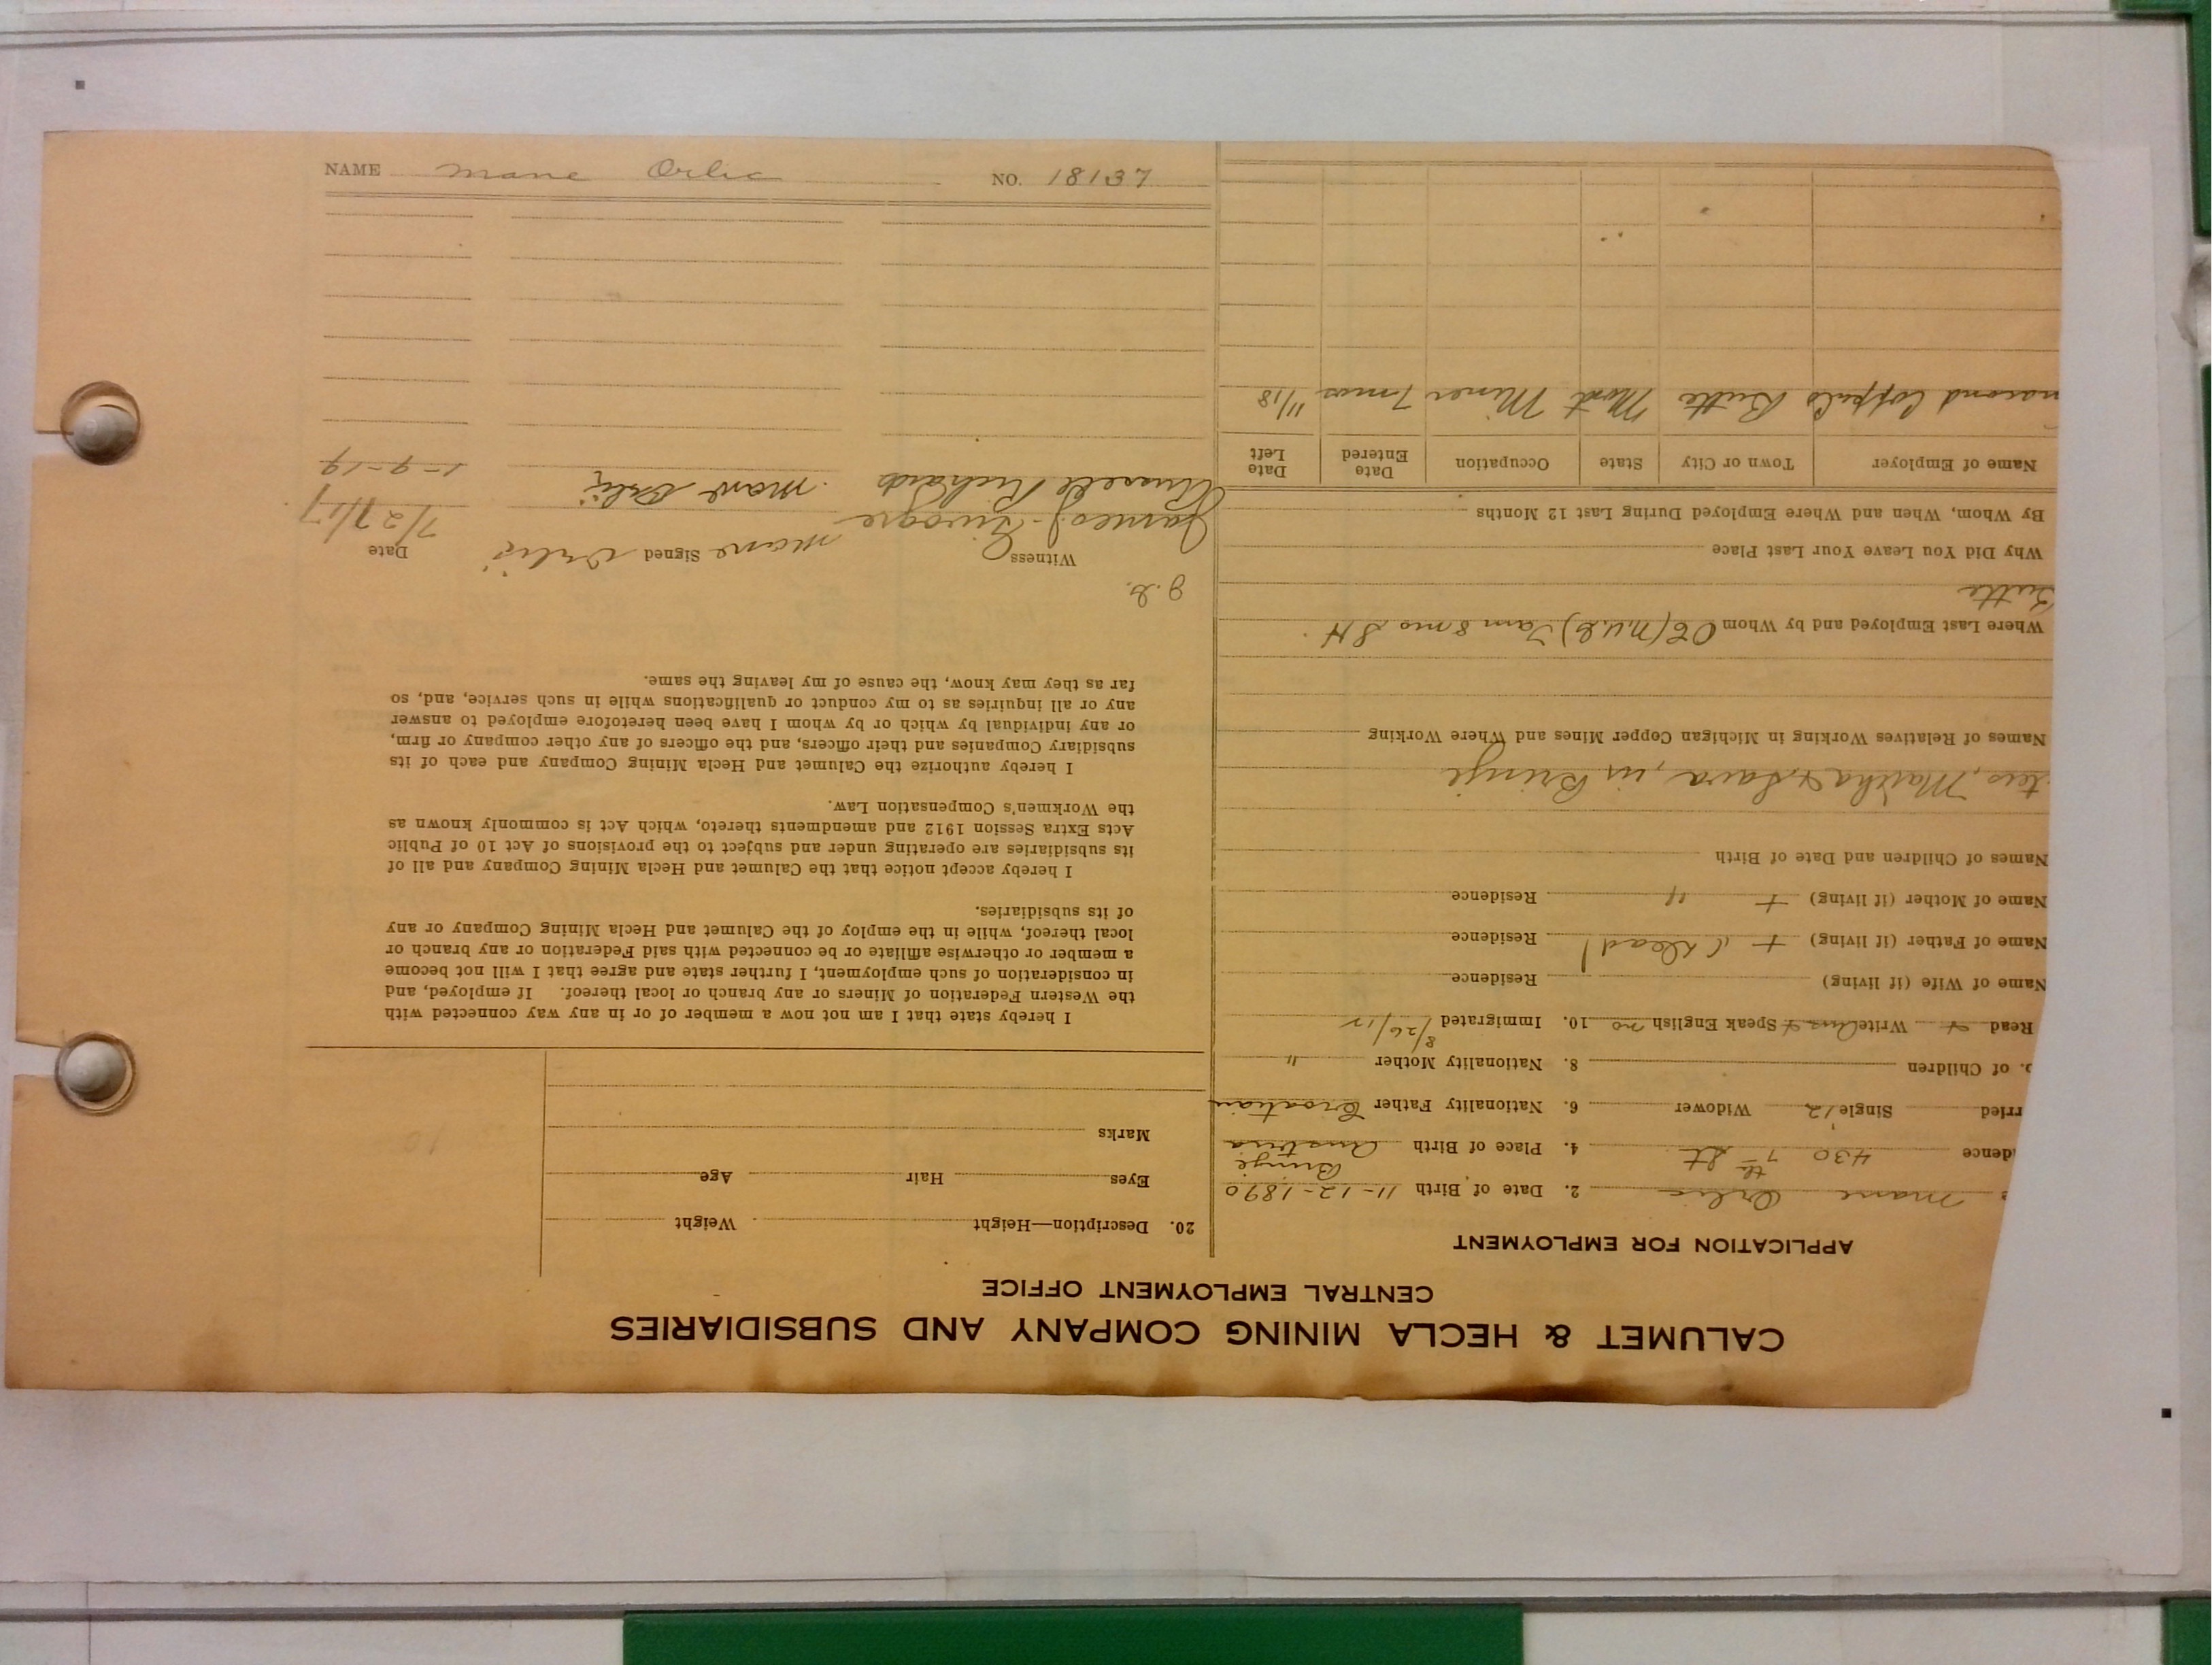 CALUMET & HECLA MINING COMPANY AND SUBSIDIARIES
CENTRAL EMPLOYMENT OFFICE
APPLICATION FOR EMPLOYMENT
Mane Orlic 2. Date of Birth 11-12-1890
dence 430 7th St 4. Place of Birth Brinje Austria
rried Single 12 Widower 6. Nationality Father Croatian
of Children 8. Nationality Mother "
Read + Write Aus + Speak English no 10. Immigrated 8/26/12
Name of Wife (if living) Residence
Name of Father (if living) + (dead) Residence
Name of Mother (if living) + " Residence
Names of Children and Date of Birth
ters, Martha & Sava, in Brinje
Names of Relatives Working in Michigan Copper Mines and Where Working
Where Last Employed and by Whom
Butte
Why Did You Leave Your Last Place
By Whom, When and Where Employed During Last 12 Months
Name of Employer Town or City State Occupation Date Entered Date Left
Butte Mont Miner 7 mos 11/18
20. Description—Height Weight
Eyes Hair Age
Marks
I hereby state that I am not now a member of or in any way connected with
the Western Federation of Miners or any branch or local thereof. If employed, and
in consideration of such employment, I further state and agree that I will not become
a member or otherwise affiliate or be connected with said Federation or any branch or
local thereof, while in the employ of the Calumet and Hecla Mining Company or any
of its subsidiaries.
I hereby accept notice that the Calumet and Hecla Mining Company and all of
its subsidiaries are operating under and subject to the provisions of Act 10 of Public
Acts Extra Session 1912 and amendments thereto, which Act is commonly known as
the Workmen's Compensation Law.
I hereby authorize the Calumet and Hecla Mining Company and each of its
subsidiary Companies and their officers, and the officers of any other company or firm,
or any individual by which or by whom I have been heretofore employed to answer
any or all inquiries as to my conduct or qualifications while in such service, and, so
far as they may know, the cause of my leaving the same.
Witness Signed Date
James J. Mane Orlić 7/27/17
Russell Richards Mane Orlić 1-9-19
NAME Mane Orlic NO. 18137